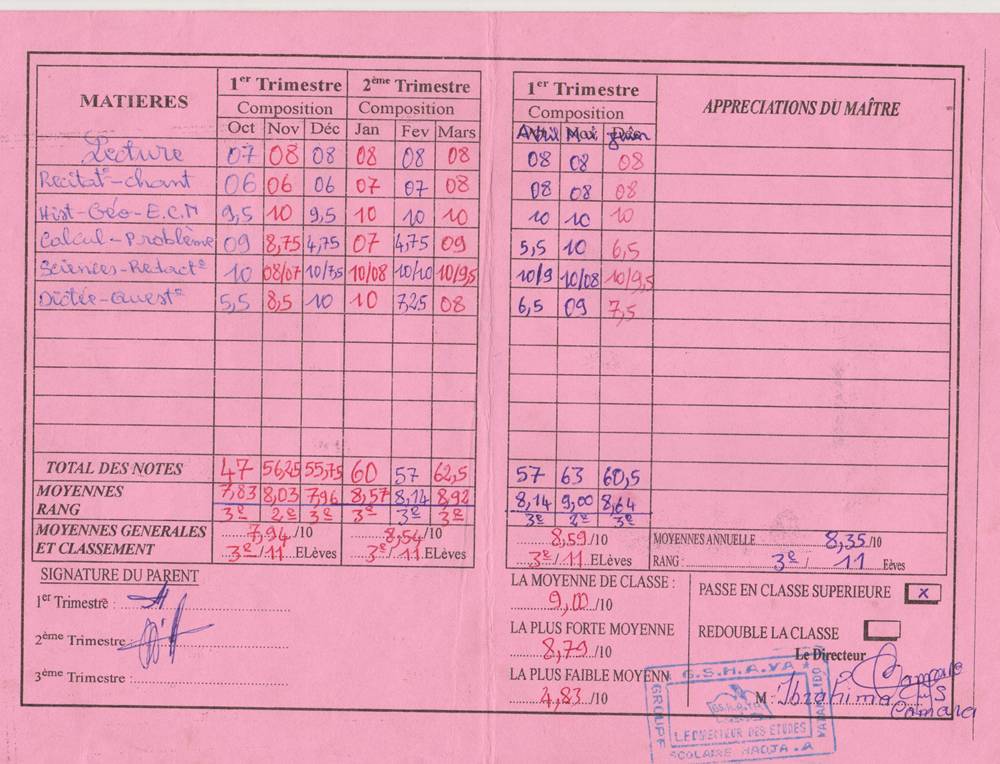 MATIERES 1er Trimestre 2ème Trimestre
Composition Composition
Oct Nov Déc Jan Fev Mars
Lecture 07 08 08 08 08 08
Recitat°-chant 06 06 06 07 07 08
Hist-Géo-E.C.M 9,5 10 9,5 10 10 10
Calcul-Problème 09 8,75 4,75 07 4,75 09
Sciences-Redact° 10 08/07 10/7,5 10/08 10/10 10/9,5
Dictée-Quest° 5,5 8,5 10 10 7,25 08
TOTAL DES NOTES 47 56,25 55,75 60 57 62,5
MOYENNES 7,83 8,03 7,96 8,57 8,14 8,92
RANG 3e 2e 3e 3e 3e 3e
MOYENNES GENERALES 7,94/10 8,54/10
ET CLASSEMENT 3e/11 ELèves 3e/11 ELèves
SIGNATURE DU PARENT
1er Trimestre :
2ème Trimestre :
3ème Trimestre :
1er Trimestre APPRECIATIONS DU MAÎTRE
Composition
Avril Mai Juin
08 08 08
08 08 08
10 10 10
5,5 10 6,5
10/9 10/08 10/9,5
6,5 09 7,5
57 63 60,5
8,14 9,00 8,64
3e 2e 3e
8,59/10 MOYENNES ANNUELLE 8,35/10
3e/11 ELèves RANG : 3e/ 11 Eèves
LA MOYENNE DE CLASSE :
9,00/10
LA PLUS FORTE MOYENNE
8,79/10
LA PLUS FAIBLE MOYENN
4,83/10
PASSE EN CLASSE SUPERIEURE x
REDOUBLE LA CLASSE
Le Directeur
M : Ibrahima
Camara
G.S.H.A.YA
GROUPE
LE DIRECTEUR DES ETUDES
SCOLAIRE HADJA.A